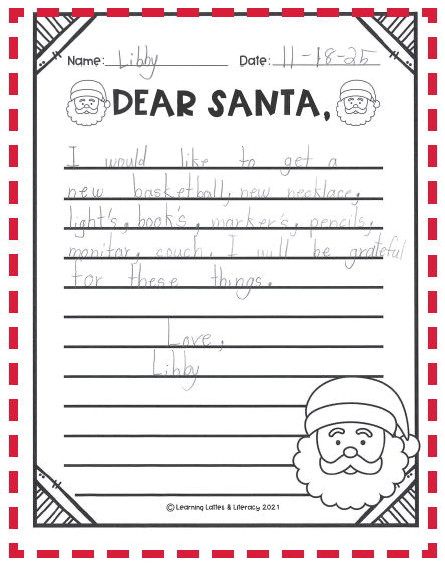 Name: Libby Date: 11-18-25
DEAR SANTA,
I would like to get a
new basketball, new necklace,
light's, book's, marker's, pencils,
monitor, couch. I will be grateful
for these things.
Love,
Libby
©Learning Lattes & Literacy 2021